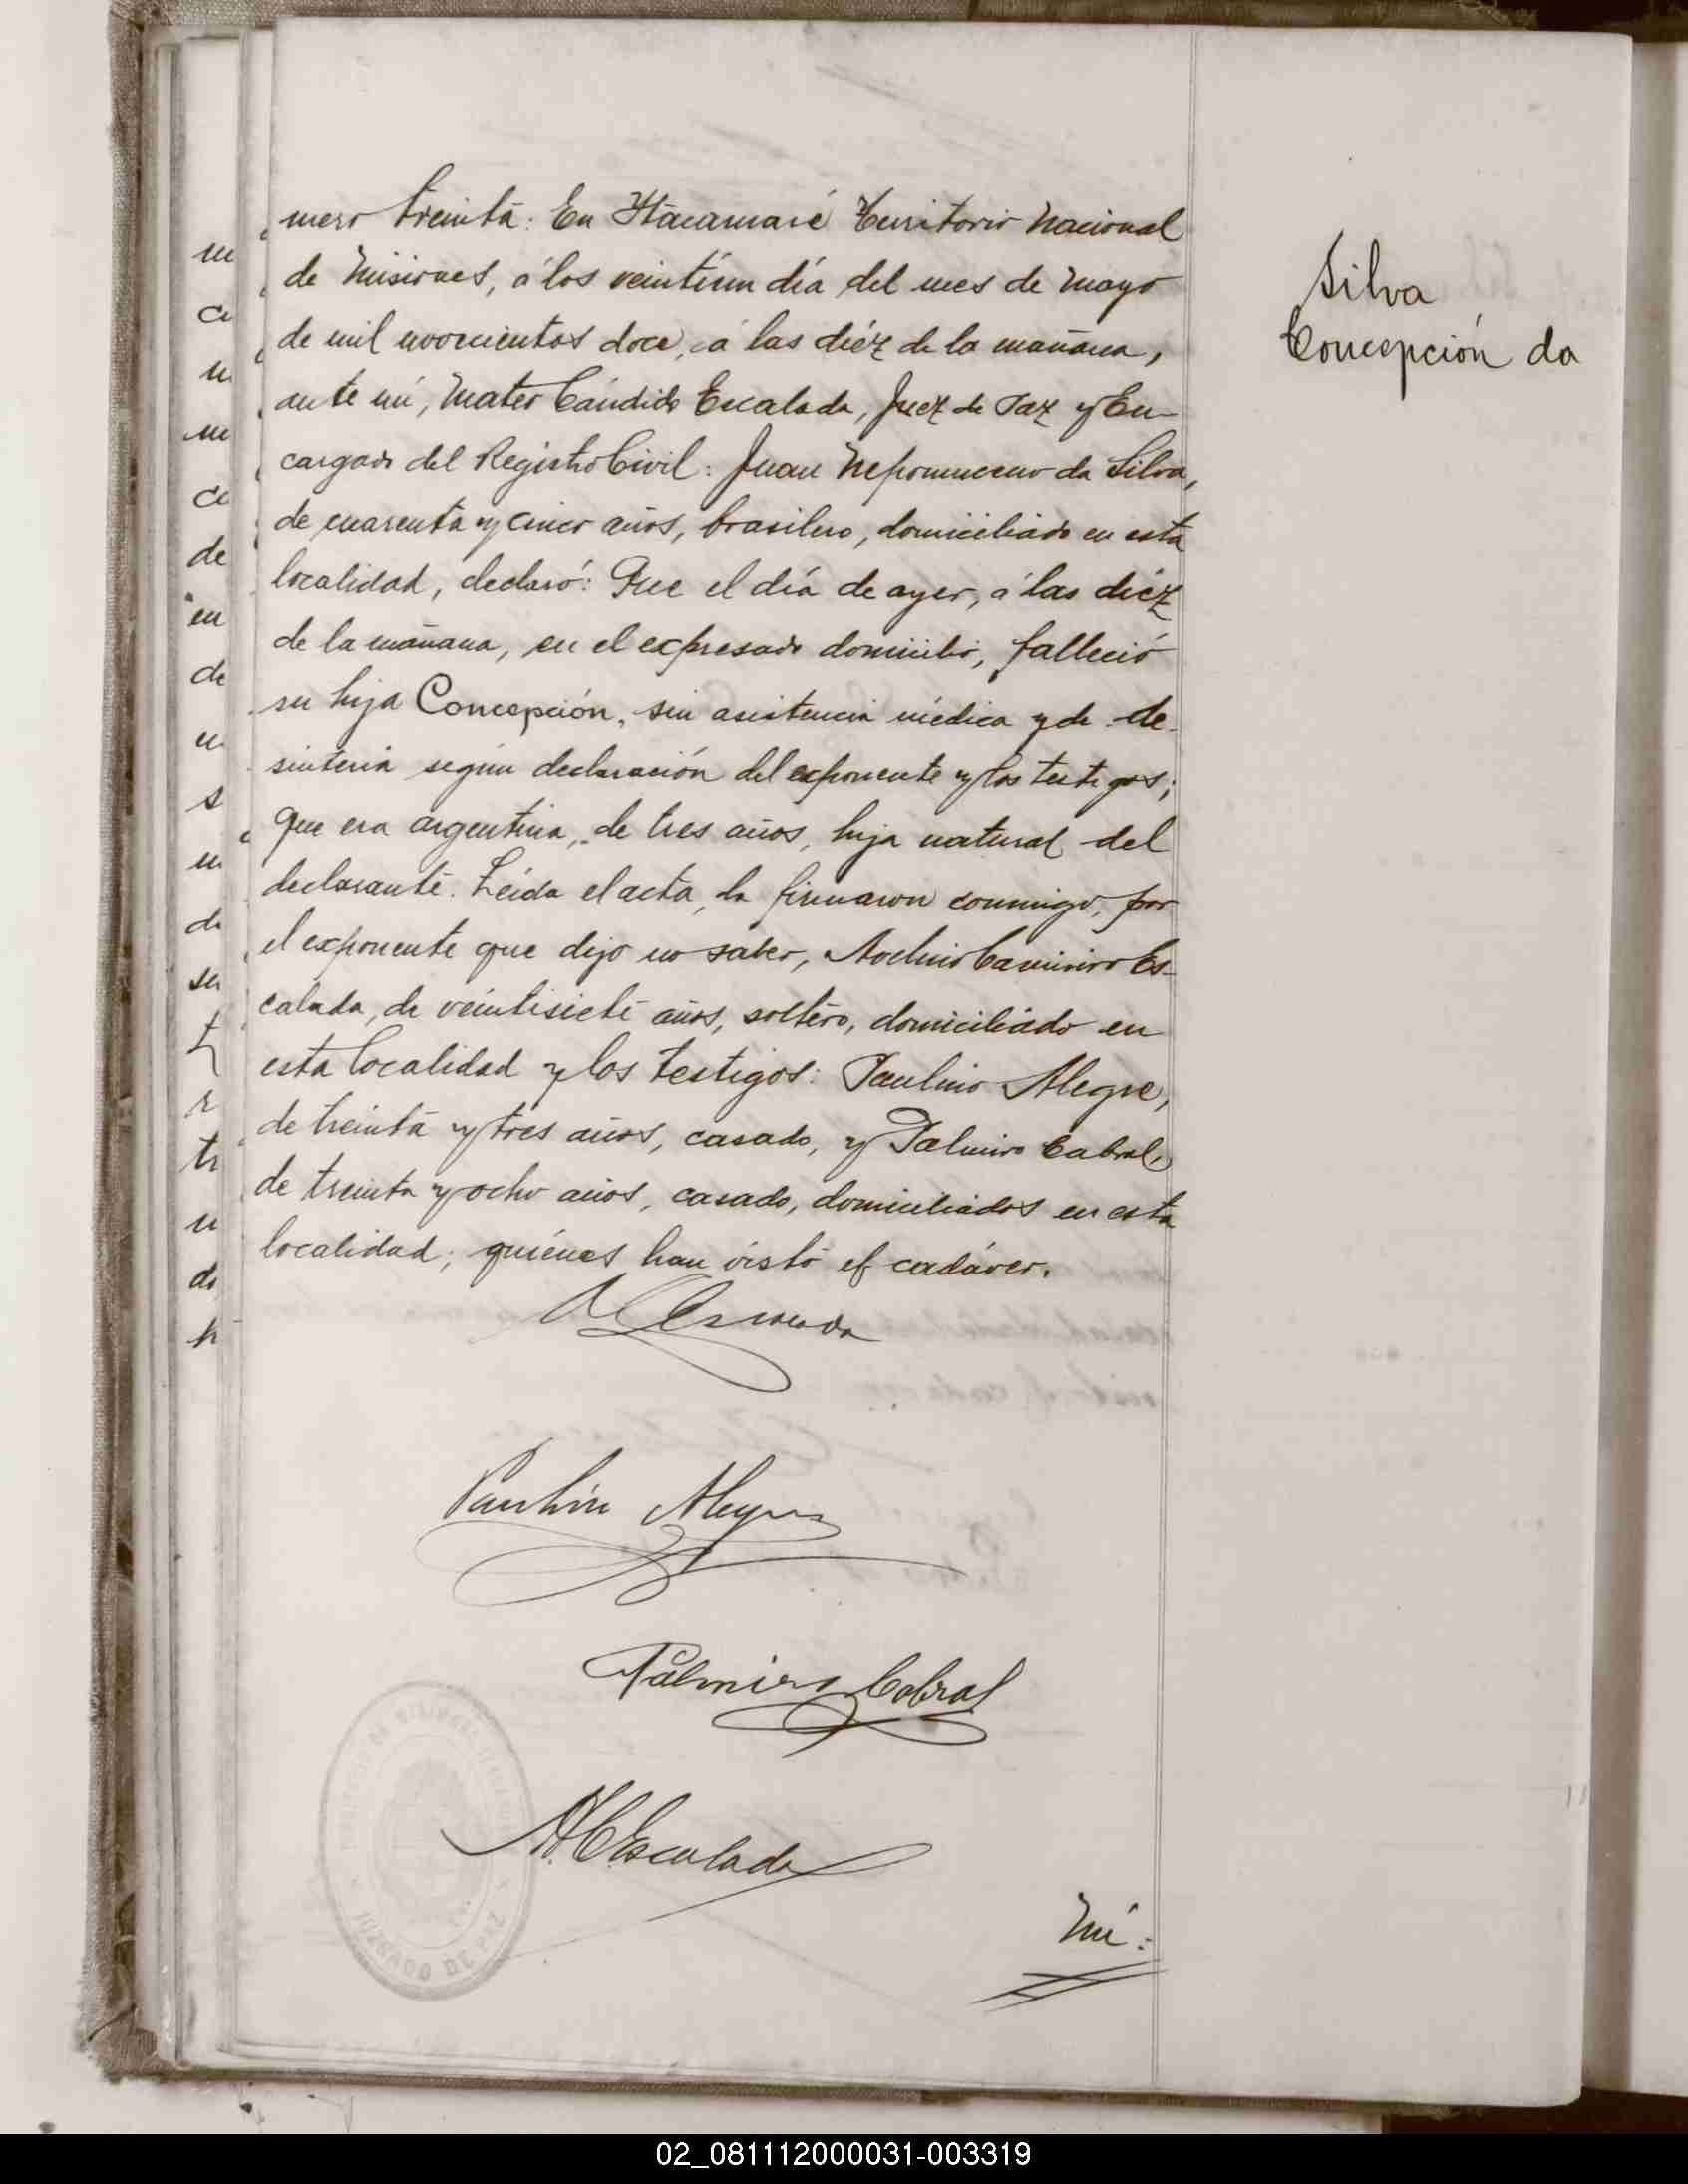 mero treinta: En Itacaruaré Territorio Nacional
de Misiones, á los veintiun día del mes de Mayo
de mil novecientos doce, á las diéz de la mañana,
ante mí, Mateo Cándido Escalada, Juez de Paz y En-
cargado del Registro Civil: Juan Nepomuceno da Silva,
de cuarenta y cinco años, brasilero, domiciliado en esta
localidad, declaró: Que el día de ayer, á las diéz
de la mañana, en el expresado domicilio, falleció
su hija Concepción, sin asistencia médica y de de-
sinteria según declaración del exponente y los testigos;
que era argentina, de tres años, hija natural del
declarante. Leida el acta, la firmaron conmigo, por
el exponente que dijo no saber, Avelino Es-
calada, de veintisiete años, soltero, domiciliado en
esta localidad y los testigos: Paulino Alegre,
de treinta y tres años, casado, y Palmiro Cabral,
de treinta y ocho años, casado, domiciliados en esta
localidad; quiénes han visto el cadáver.
Silva
Concepción da
Escalada
Paulino Alegre
Palmiro Cabral
Escalada
JUZGADO DE PAZ
Nú:
m
ce
u
m
ce
de
en
de
u
s
u
de
su
t
r
tr
u
de
h
02_081112000031-003319